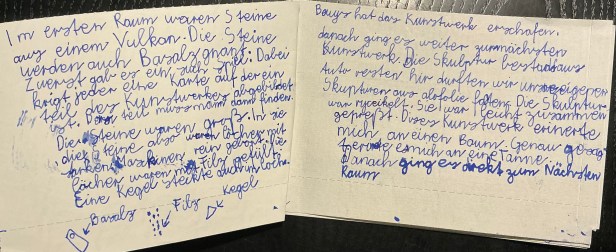 Im ersten Raum waren Steine
aus einem Vulkan. Die Steine
werden auch Basalz gnant.
Zuerst gab es ein sich Spiel: Dabei
krigt jeder eine Karte auf der ein
teil des Kunstwerkes abgebildet
ist. Das teil muss man dann finden.
Die steine waren groß. In sie
diese steine also waren löcher mit
Maschinen rein gebort. Die
löcher waren mit Filz gefüllt.
Eine Kegel steckte auch in loch.
Basalz Filz Kegel
Bouys hat das Kunstwerk erschafen.
danach ging es weiter zum nächsten
Kunstwerk. Die Skulptur bestand aus
Auto resten hir durften wir un eigene
Skulpturen aus alofolie falten. Die Skulptur
war ryceikelt. Sie war leicht zusammen
gepreßt. Dises Kunstwerk erinerte
mich an einen Baum. Genau gesagt
erinerte es mich an eine Tanne.
Danach ging es direkt zum Nächsten
Raum